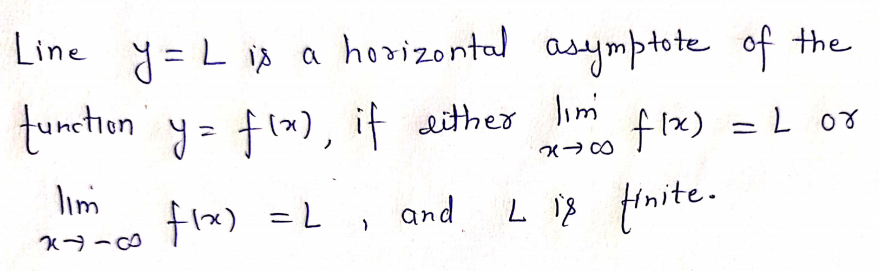 Line y = L is a horizontal asymptote of the
function y = f(x), if either lim x→∞ f(x) = L or
lim x→-∞ f(x) = L , and L is finite.